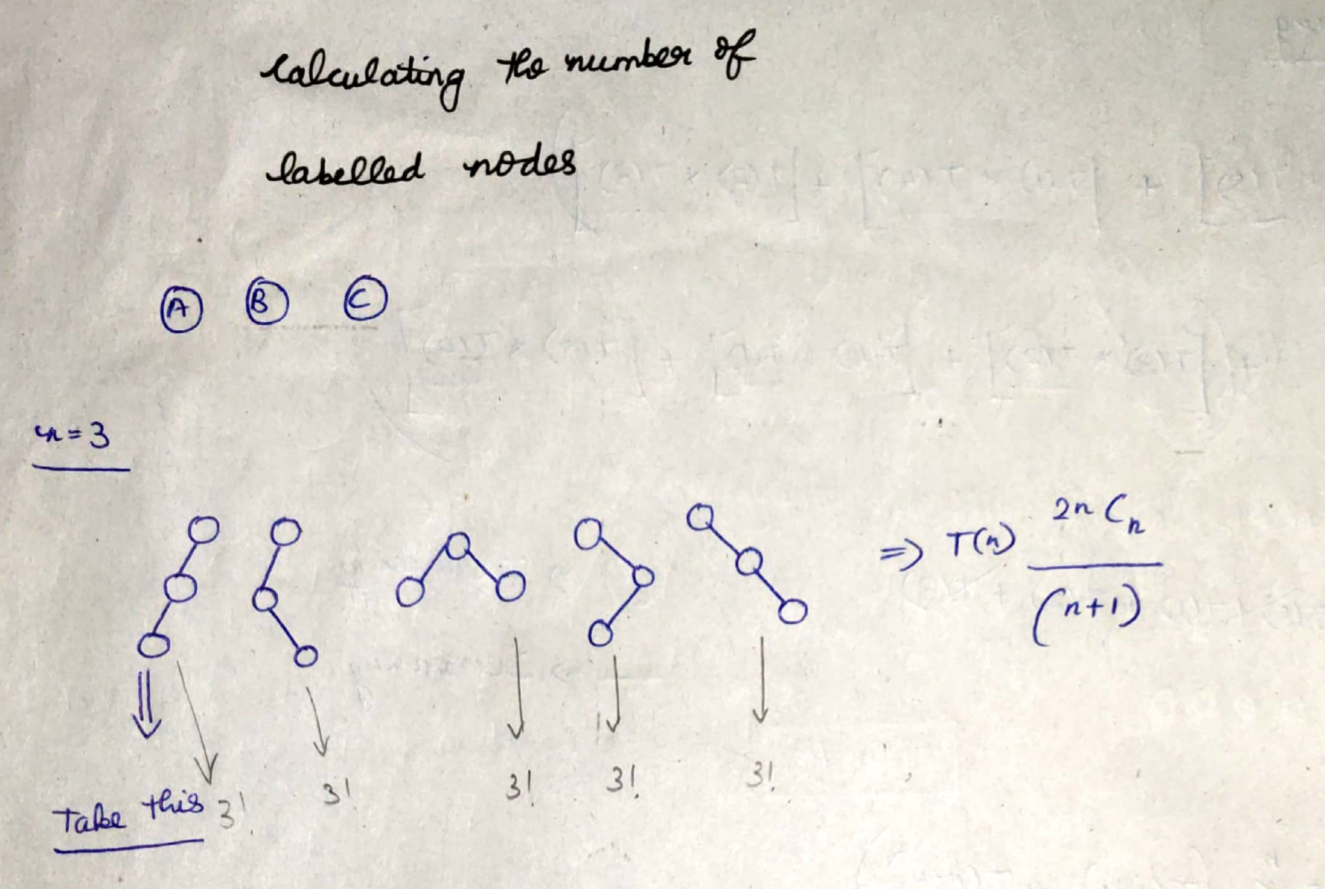 Calculating the number of
labelled nodes
A B C
n=3
=> T(n) 2n C_n / (n+1)
Take this 3! 3! 3! 3! 3!